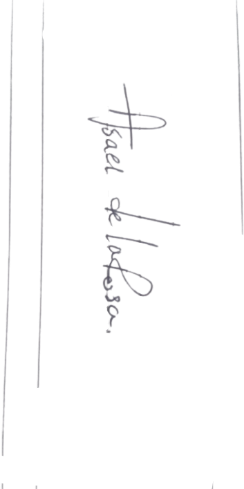 Asael de la Rosa.